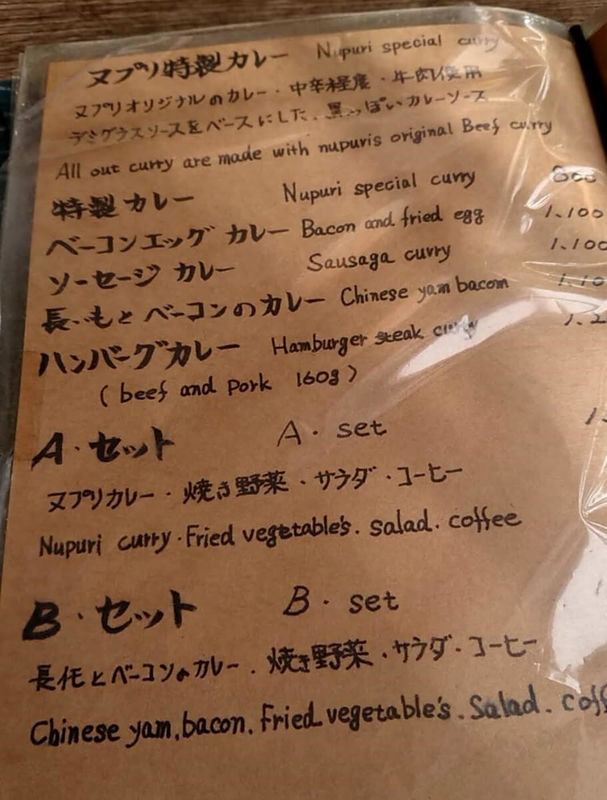 ヌプリ特製カレー Nupuri special curry
ヌプリオリジナルのカレー・中辛程度・牛肉使用
デミグラスソースをベースにした、黒っぽいカレーソース
All out curry are made with nupuris original Beef curry
特製カレー Nupuri special curry 800
ベーコンエッグ カレー Bacon and fried egg 1.100
ソーセージ カレー Sausaga curry 1.100
長いもとベーコンのカレー Chinese yam bacom 1.10
ハンバーグカレー Hamburger steak curry 1.2
(beef and pork 160g)
A・セット A・set 1.
ヌプリカレー・焼き野菜・サラダ・コーヒー
Nupuri curry・Fried vegetable's. salad. coffee
B・セット B・set
長芋とベーコンのカレー・焼き野菜・サラダ・コーヒー
Chinese yam,bacon. Fried vegetable's. Salad. coff